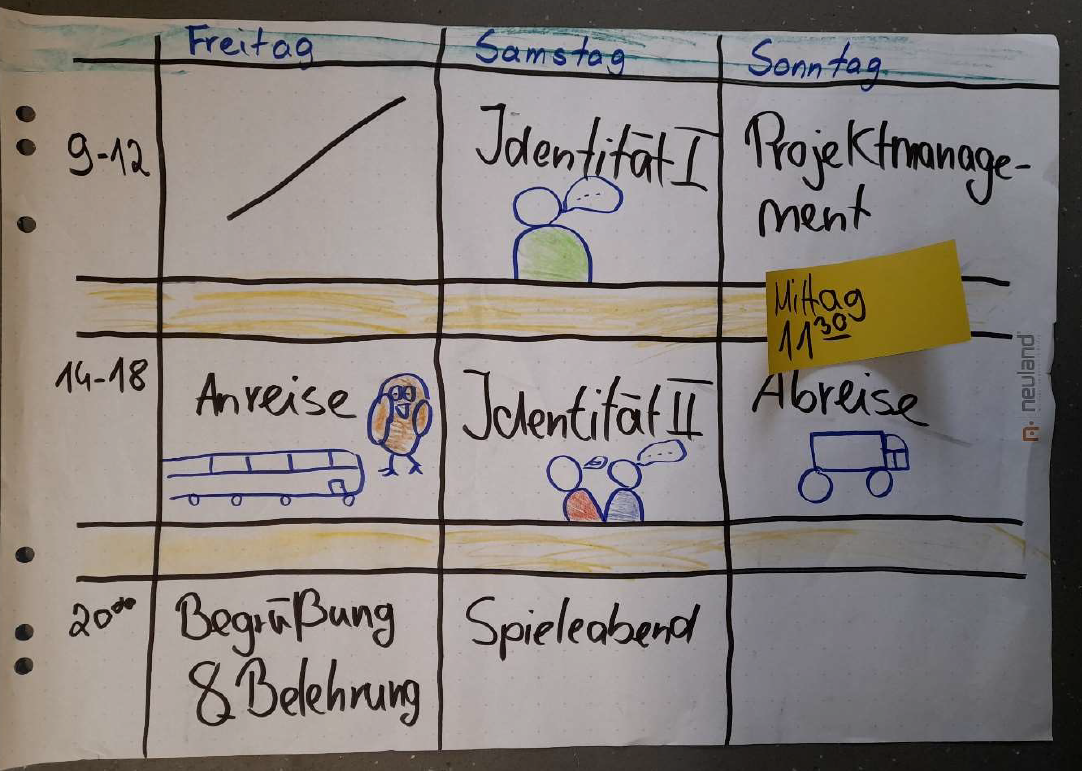 Freitag
Samstag
Sonntag
9-12
Identität I
Projektmanage-
ment
Mittag
11³⁰
14-18
Anreise
Identität II
Abreise
neuland
20⁰⁰
Begrüßung
& Belehrung
Spieleabend